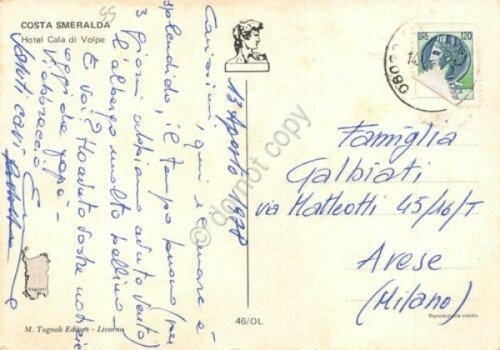 COSTA SMERALDA
Hotel Cala di Volpe
55
13 Agosto 1978
Carissimi, qui il mare è
splendido, il tempo buono (per
3 giorni abbiamo avuto vento)
l'albergo molto bellino -
E voi? Ho avuto vostre notizie
oggi da papà -
Vi abbraccio
Saluti cari
Cagliari
M. Tognoli Editore - Livorno
46/OL
do not copy
LIRE 120
08020
Famiglia
Galbiati
via Matteotti 45/46/T
Arese
(Milano)
Riproduzione vietata